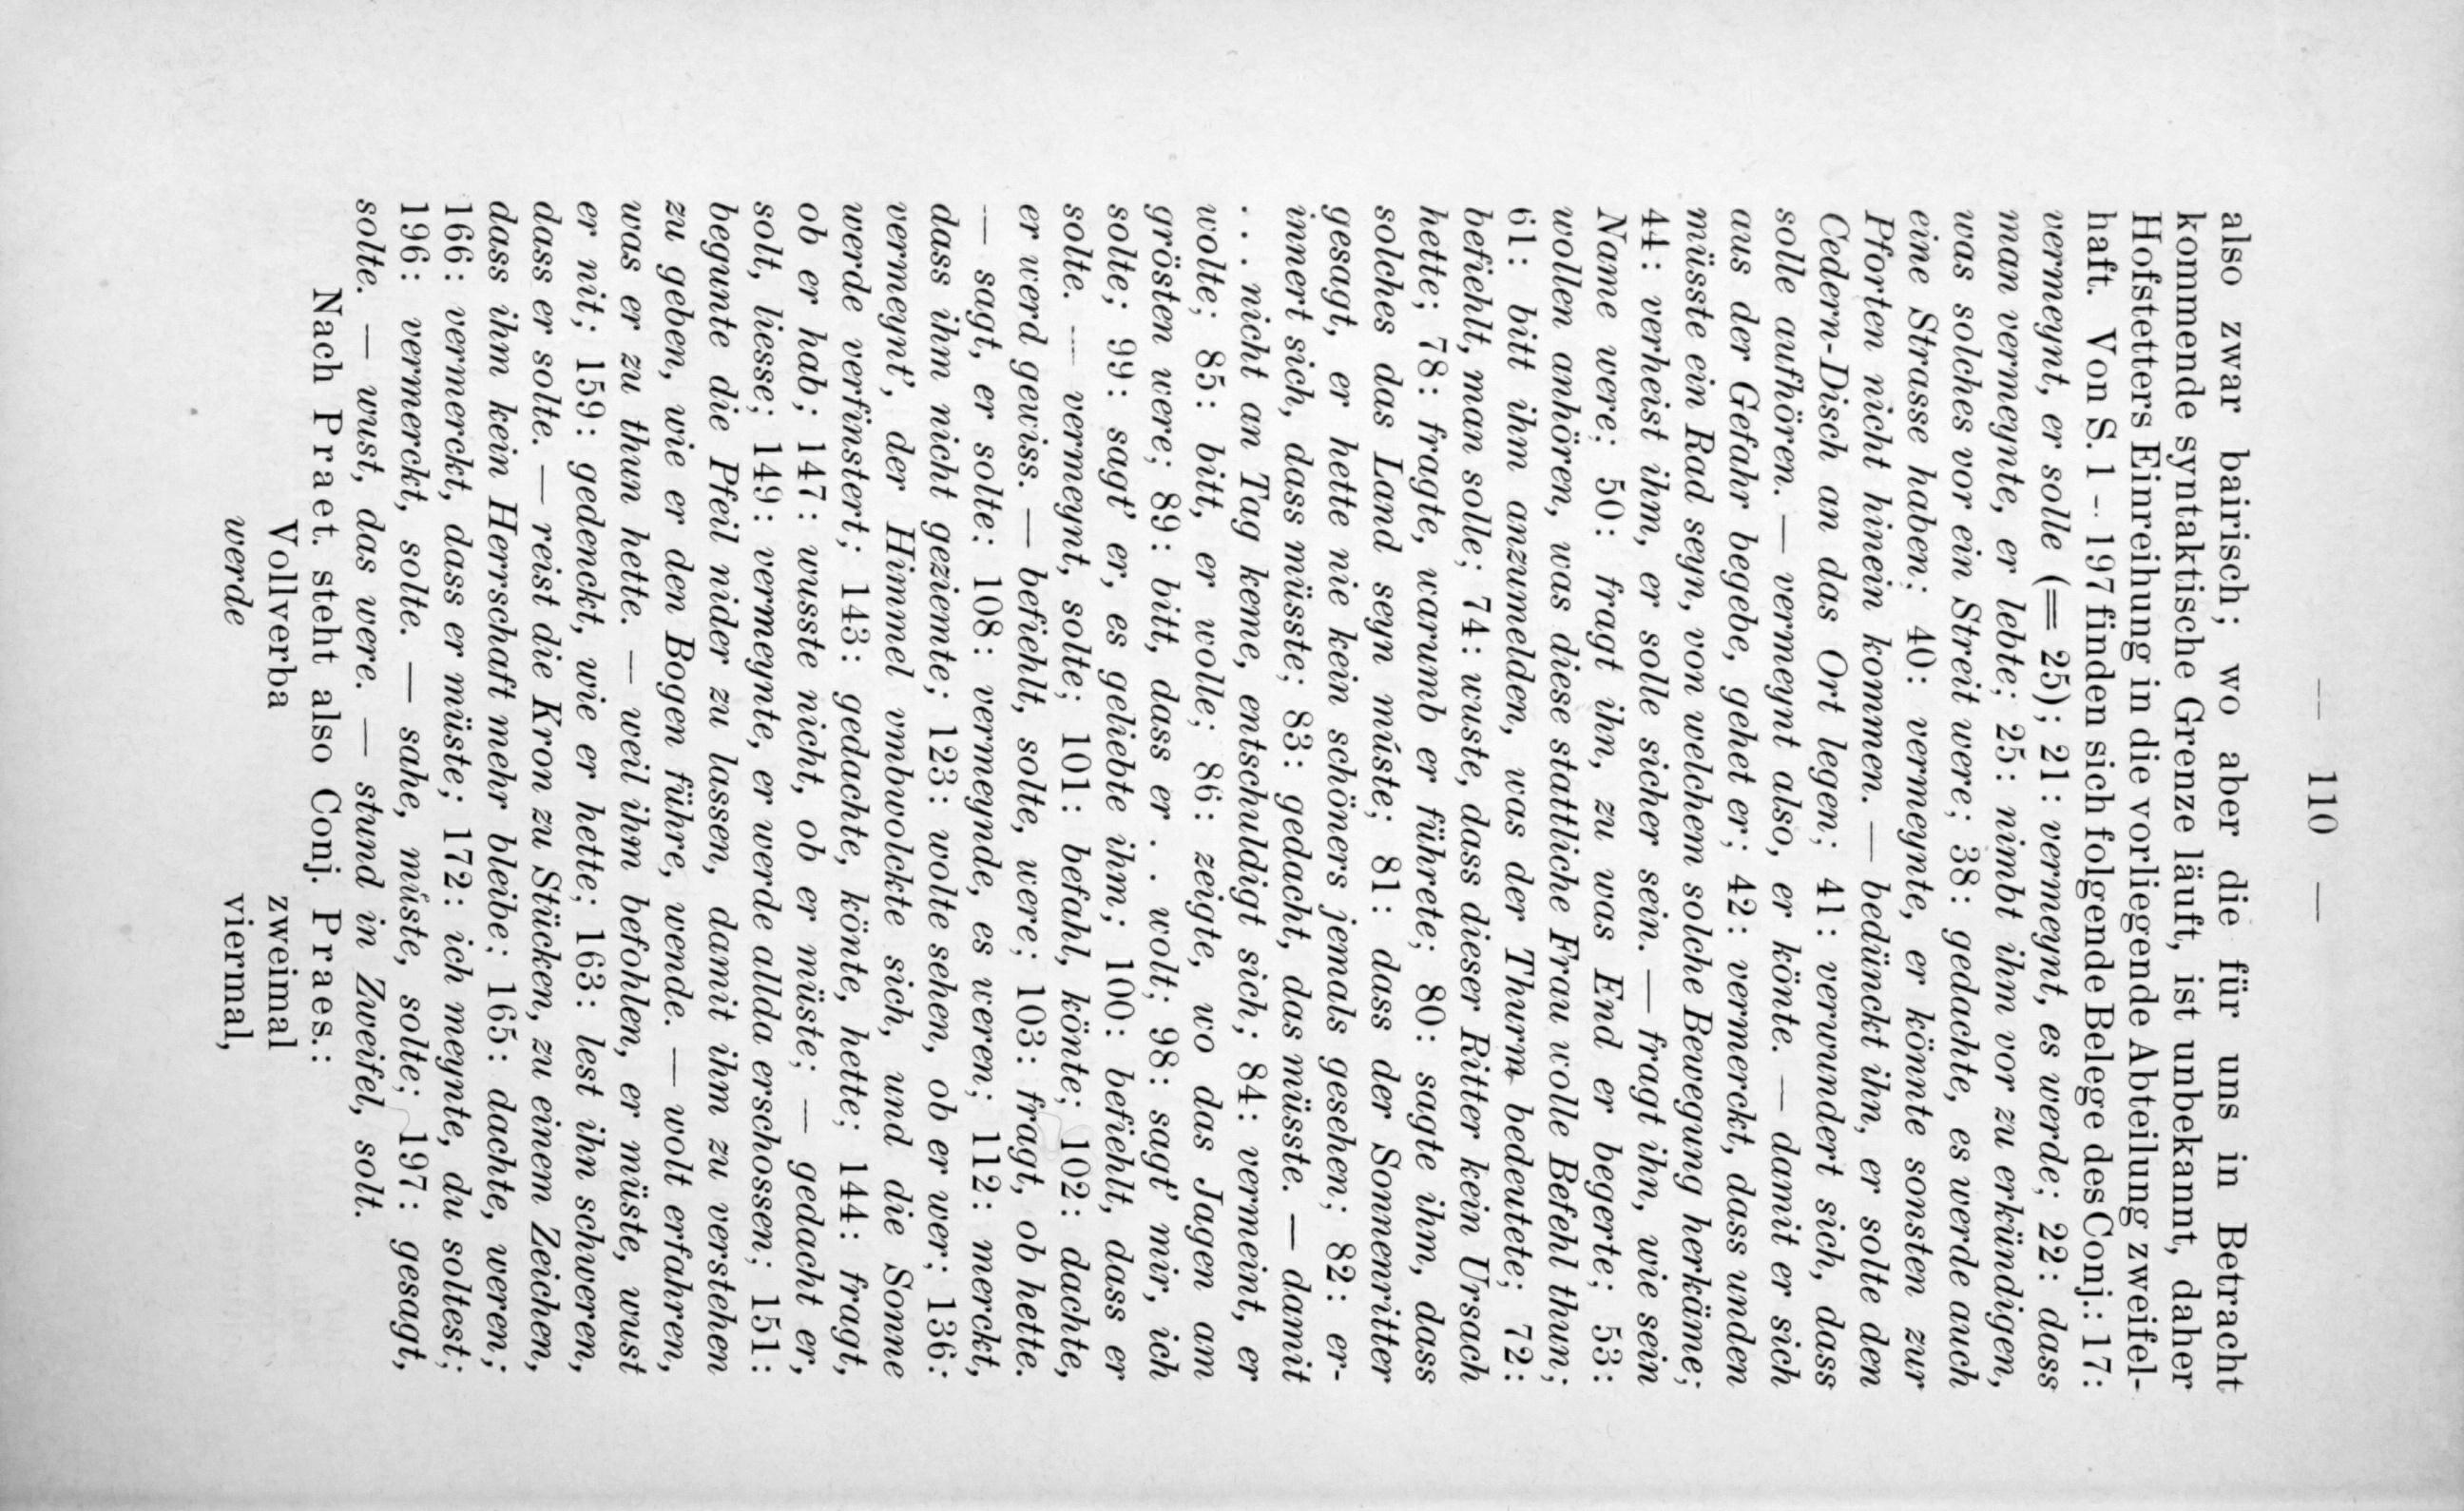 — 110 —
also zwar bairisch; wo aber die für uns in Betracht
kommende syntaktische Grenze läuft, ist unbekannt, daher
Hofstetters Einreihung in die vorliegende Abteilung zweifel-
haft. Von S. 1 – 197 finden sich folgende Belege des Conj.: 17:
vermeynt, er solle (= 25); 21: vermeynt, es werde; 22: dass
man vermeynte, er lebte; 25: nimbt ihm vor zu erkündigen,
was solches vor ein Streit were; 38: gedachte, es werde auch
eine Strasse haben; 40: vermeynte, er könnte sonsten zur
Pforten nicht hinein kommen. — bedünckt ihn, er solte den
Cedern-Disch an das Ort legen; 41: verwundert sich, dass
solle aufhören. — vermeynt also, er könte. — damit er sich
aus der Gefahr begebe, gehet er; 42: vermerckt, dass unden
müsste ein Rad seyn, von welchem solche Bewegung herkäme;
44: verheist ihm, er solle sicher sein. — fragt ihn, wie sein
Name were; 50: fragt ihn, zu was End er begerte; 53:
wollen anhören, was diese stattliche Frau wolle Befehl thun;
61: bitt ihm anzumelden, was der Thurm bedeutete; 72:
befiehlt, man solle; 74: wuste, dass dieser Ritter kein Ursach
hette; 78: fragte, warumb er führete; 80: sagte ihm, dass
solches das Land seyn múste; 81: dass der Sonnenritter
gesagt, er hette nie kein schöners jemals gesehen; 82: er-
innert sich, dass müsste; 83: gedacht, das müsste. — damit
. . . nicht an Tag keme, entschuldigt sich; 84: vermeint, er
wolte; 85: bitt, er wolle; 86: zeigte, wo das Jagen am
grösten were; 89: bitt, dass er . . wolt; 98: sagt' mir, ich
solte; 99: sagt' er, es geliebte ihm; 100: befiehlt, dass er
solte. — vermeynt, solte; 101: befahl, könte; 102: dachte,
er werd gewiss. — befiehlt, solte, were; 103: fragt, ob hette.
— sagt, er solte; 108: vermeynde, es weren; 112: merckt,
dass ihm nicht geziemte; 123: wolte sehen, ob er wer; 136:
vermeynt', der Himmel vmbwolckte sich, und die Sonne
werde verfinstert; 143: gedachte, könte, hette; 144: fragt,
ob er hab; 147: wusste nicht, ob er müste; — gedacht er,
solt, liesse; 149: vermeynte, er werde allda erschossen; 151:
begunte die Pfeil nider zu lassen, damit ihm zu verstehen
zu geben, wie er den Bogen führe, wende. — wolt erfahren,
was er zu thun hette. — weil ihm befohlen, er müste, wust
er nit; 159: gedenckt, wie er hette; 163: lest ihn schweren,
dass er solte. — reist die Kron zu Stücken, zu einem Zeichen,
dass ihm kein Herrschaft mehr bleibe; 165: dachte, weren;
166: vermerckt, dass er müste; 172: ich meynte, du soltest;
196: vermerckt, solte. — sahe, múste, solte; 197: gesagt,
solte. — wust, das were. — stund in Zweifel, solt.
Nach Praet. steht also Conj. Praes.:
Vollverba zweimal
werde viermal,